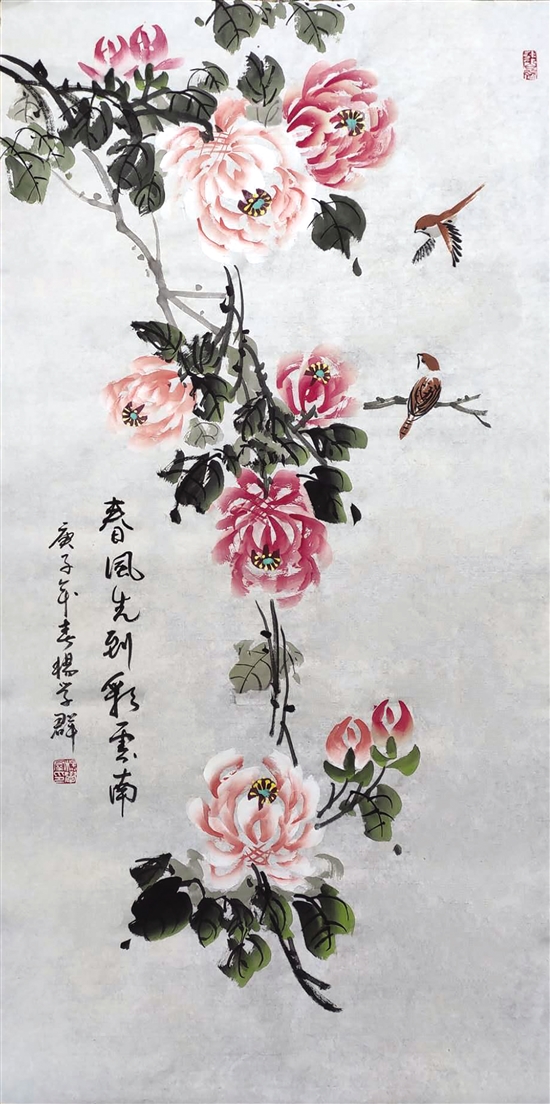 春风先到彩云南
庚子年春杨学群